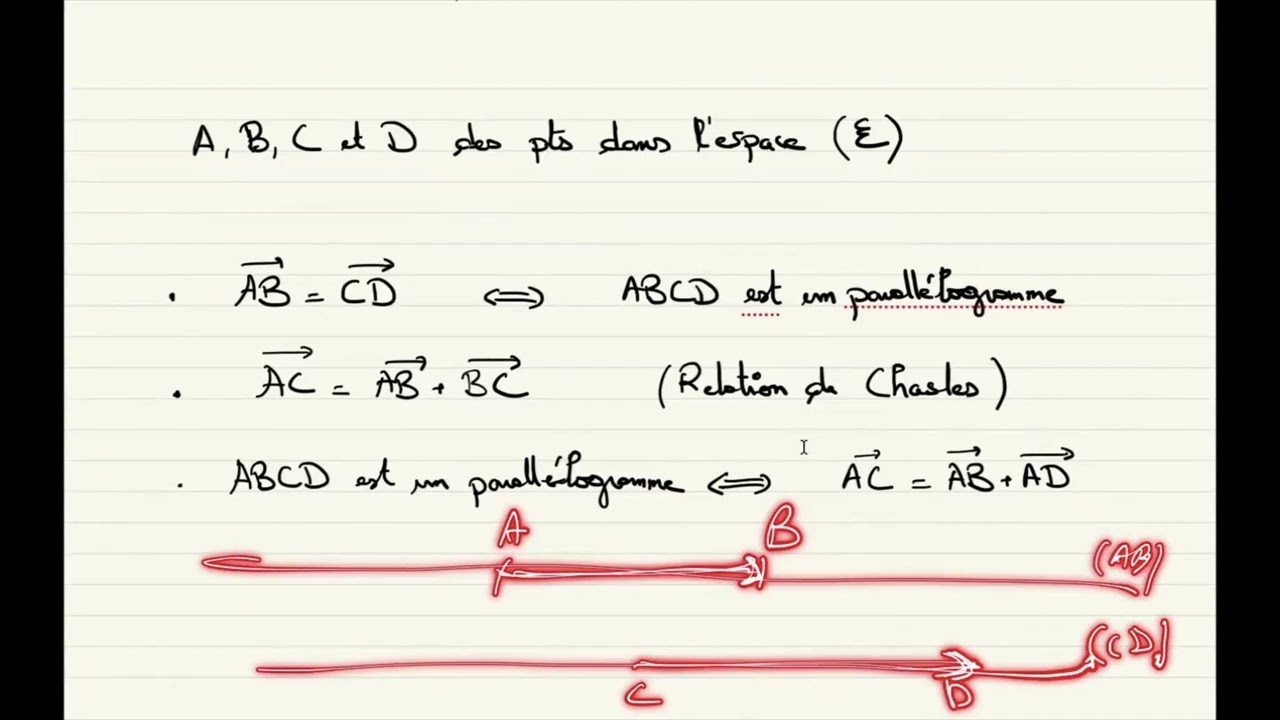 A, B, C et D des pts dans l'espace (ℰ)
. \overrightarrow{AB} = \overrightarrow{CD} ⟺ ABCD est un parallélogramme
. \overrightarrow{AC} = \overrightarrow{AB} + \overrightarrow{BC} (Relation de Chasles)
. ABCD est un parallélogramme ⟺ \overrightarrow{AC} = \overrightarrow{AB} + \overrightarrow{AD}
A B (AB)
C D (CD)